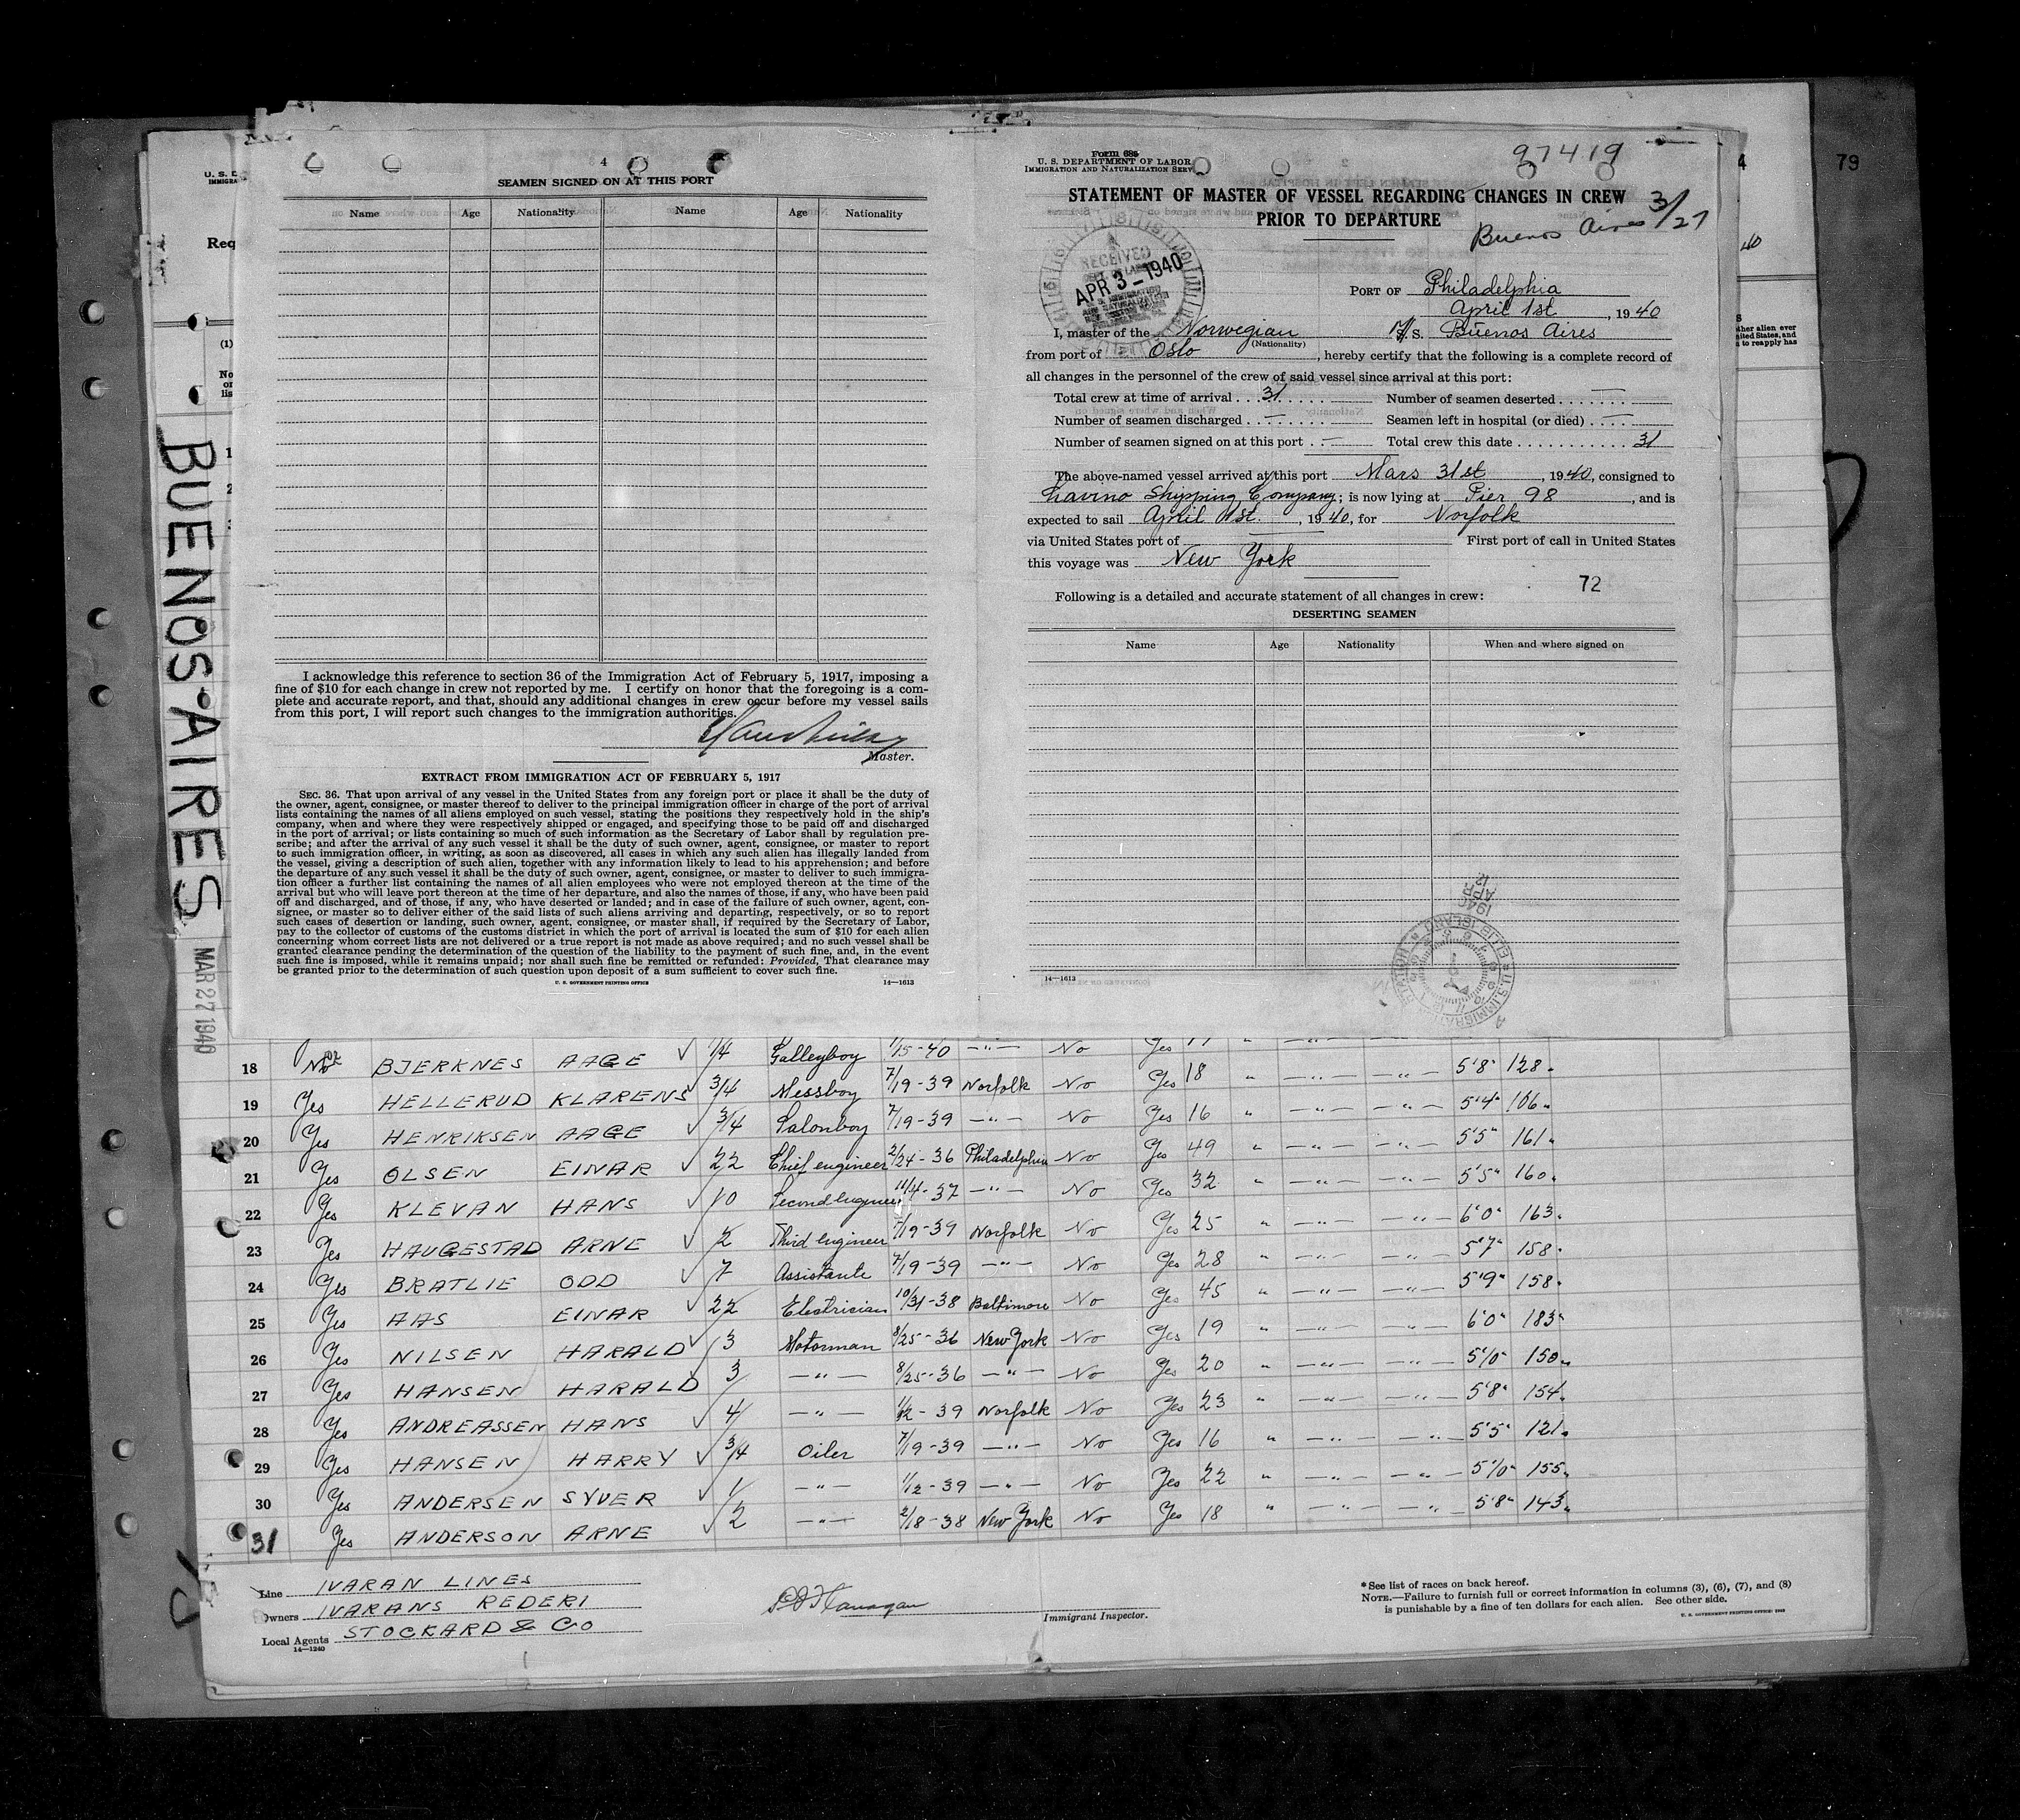 79
4
U. S. D
IMMIGRA
Req
(1)
No
or
lis
BUENOS AIRES
MAR 27 1940
4
SEAMEN SIGNED ON AT THIS PORT
Name Age Nationality Name Age Nationality
I acknowledge this reference to section 36 of the Immigration Act of February 5, 1917, imposing a
fine of $10 for each change in crew not reported by me. I certify on honor that the foregoing is a com-
plete and accurate report, and that, should any additional changes in crew occur before my vessel sails
from this port, I will report such changes to the immigration authorities.
Master.
EXTRACT FROM IMMIGRATION ACT OF FEBRUARY 5, 1917
SEC. 36. That upon arrival of any vessel in the United States from any foreign port or place it shall be the duty of
the owner, agent, consignee, or master thereof to deliver to the principal immigration officer in charge of the port of arrival
lists containing the names of all aliens employed on such vessel, stating the positions they respectively hold in the ship's
company, when and where they were respectively shipped or engaged, and specifying those to be paid off and discharged
in the port of arrival; or lists containing so much of such information as the Secretary of Labor shall by regulation pre-
scribe; and after the arrival of any such vessel it shall be the duty of such owner, agent, consignee, or master to report
to such immigration officer, in writing, as soon as discovered, all cases in which any such alien has illegally landed from
the vessel, giving a description of such alien, together with any information likely to lead to his apprehension; and before
the departure of any such vessel it shall be the duty of such owner, agent, consignee, or master to deliver to such immigra-
tion officer a further list containing the names of all alien employees who were not employed thereon at the time of the
arrival but who will leave port thereon at the time of her departure, and also the names of those, if any, who have been paid
off and discharged, and of those, if any, who have deserted or landed; and in case of the failure of such owner, agent, con-
signee, or master so to deliver either of the said lists of such aliens arriving and departing, respectively, or so to report
such cases of desertion or landing, such owner, agent, consignee, or master shall, if required by the Secretary of Labor,
pay to the collector of customs of the customs district in which the port of arrival is located the sum of $10 for each alien
concerning whom correct lists are not delivered or a true report is not made as above required; and no such vessel shall be
granted clearance pending the determination of the question of the liability to the payment of such fine, and, in the event
such fine is imposed, while it remains unpaid; nor shall such fine be remitted or refunded: Provided, That clearance may
be granted prior to the determination of such question upon deposit of a sum sufficient to cover such fine.
U. S. GOVERNMENT PRINTING OFFICE 14—1613
Form 685
U. S. DEPARTMENT OF LABOR
IMMIGRATION AND NATURALIZATION SERV
97419
STATEMENT OF MASTER OF VESSEL REGARDING CHANGES IN CREW
PRIOR TO DEPARTURE
Buenos Aires 3/27
RECEIVED
APR 3 - 1940
PORT OF Philadelphia
April 1st, 1940
I, master of the Norwegian M/S. Buenos Aires
(Nationality)
from port of Oslo, hereby certify that the following is a complete record of
all changes in the personnel of the crew of said vessel since arrival at this port:
Total crew at time of arrival 31 Number of seamen deserted —
Number of seamen discharged — Seamen left in hospital (or died) —
Number of seamen signed on at this port — Total crew this date 31
The above-named vessel arrived at this port Mars 31st, 1940, consigned to
Lavino Shipping Company; is now lying at Pier 98, and is
expected to sail April 1st., 1940, for Norfolk
via United States port of — First port of call in United States
this voyage was New York
72
Following is a detailed and accurate statement of all changes in crew:
DESERTING SEAMEN
Name Age Nationality When and where signed on
14—1613
1940
APR
12
U.S. IMMIGRATION
ELLIS ISLAND
40
ther alien ever
nited States, and
s to reapply has
18 BJERKNES AAGE ✓ 1/4 Galleyboy 1/15-40 —"— No Yes 17
19 Yes HELLERUD KLARENS 3/4 Messboy 7/19-39 Norfolk No Yes 18 " —"— —"— 5'8" 128"
20 Yes HENRIKSEN AAGE ✓ 3/4 Salonboy 7/19-39 —"— No Yes 16 " —"— —"— 5'4" 106"
21 Yes OLSEN EINAR ✓ 22 Chief engineer 2/24-36 Philadelphia No Yes 49 " —"— —"— 5'5" 161"
22 Yes KLEVAN HANS ✓ 10 Second Engineer 11/4-37 —"— No Yes 32 " —"— —"— 5'5" 160"
23 Yes HAUGESTAD ARNE ✓ 2 Third engineer 7/19-39 Norfolk No Yes 25 " —"— —"— 6'0" 163"
24 Yes BRATLIE ODD ✓ 7 Assistante 7/19-39 —"— No Yes 28 " —"— —"— 5'7" 158"
25 Yes AAS EINAR ✓ 22 Electrician 10/31-38 Baltimore No Yes 45 " —"— —"— 5'9" 158"
26 Yes NILSEN HARALD ✓ 3 Motorman 8/25-36 New York No Yes 19 " —"— —"— 6'0" 183"
27 Yes HANSEN HARALD 3 —"— 8/25-36 —"— No Yes 20 " —"— —"— 5'10" 150"
28 Yes ANDREASSEN HANS ✓ 4 —"— 1/12-39 Norfolk No Yes 23 " —"— —"— 5'8" 154"
29 Yes HANSEN HARRY ✓ 3/4 Oiler 7/19-39 —"— No Yes 16 " —"— —"— 5'5" 121"
30 Yes ANDERSEN SYVER ✓ 1 —"— 1/12-39 —"— No Yes 22 " —"— —"— 5'10" 155"
31 Yes ANDERSON ARNE ✓ 2 —"— 2/18-38 New York No Yes 18 " —"— —"— 5'8" 143"
Line IVARAN LINES
Owners IVARANS REDERI
Local Agents STOCKARD & CO
14—1240
Flanagan
Immigrant Inspector.
*See list of races on back hereof.
NOTE.—Failure to furnish full or correct information in columns (3), (6), (7), and (8)
is punishable by a fine of ten dollars for each alien. See other side.